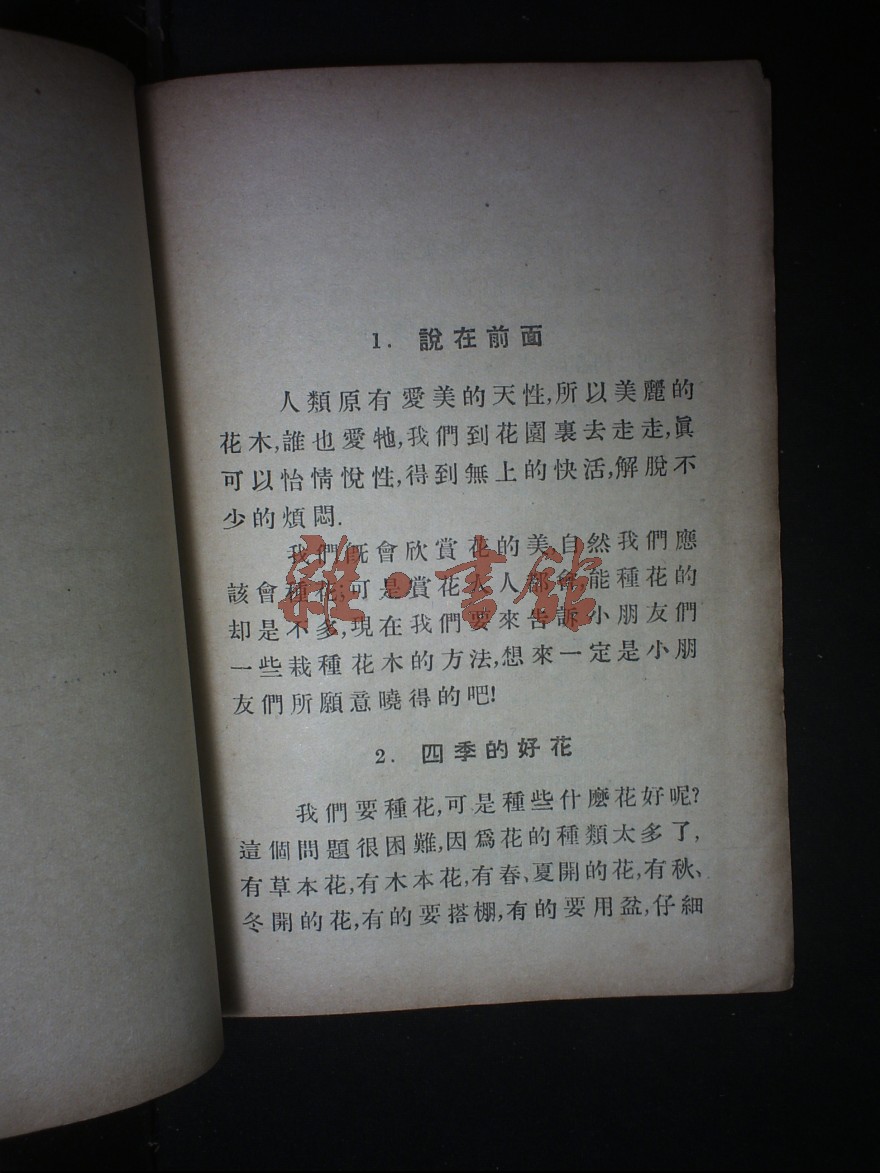 1. 說在前面
人類原有愛美的天性,所以美麗的
花木,誰也愛牠,我們到花園裏去走走,眞
可以怡情悅性,得到無上的快活,解脫不
少的煩悶.
我們旣會欣賞花的美,自然我們應
該會種花,可是賞花人人都會,能種花的
却是不多,現在我們要來告訴小朋友們
一些栽種花木的方法,想來一定是小朋
友們所願意曉得的吧!
2. 四季的好花
我們要種花,可是種些什麼花好呢?
這個問題很困難,因爲花的種類太多了,
有草本花,有木本花,有春、夏開的花,有秋、
冬開的花,有的要搭棚,有的要用盆,仔細
雜·書館